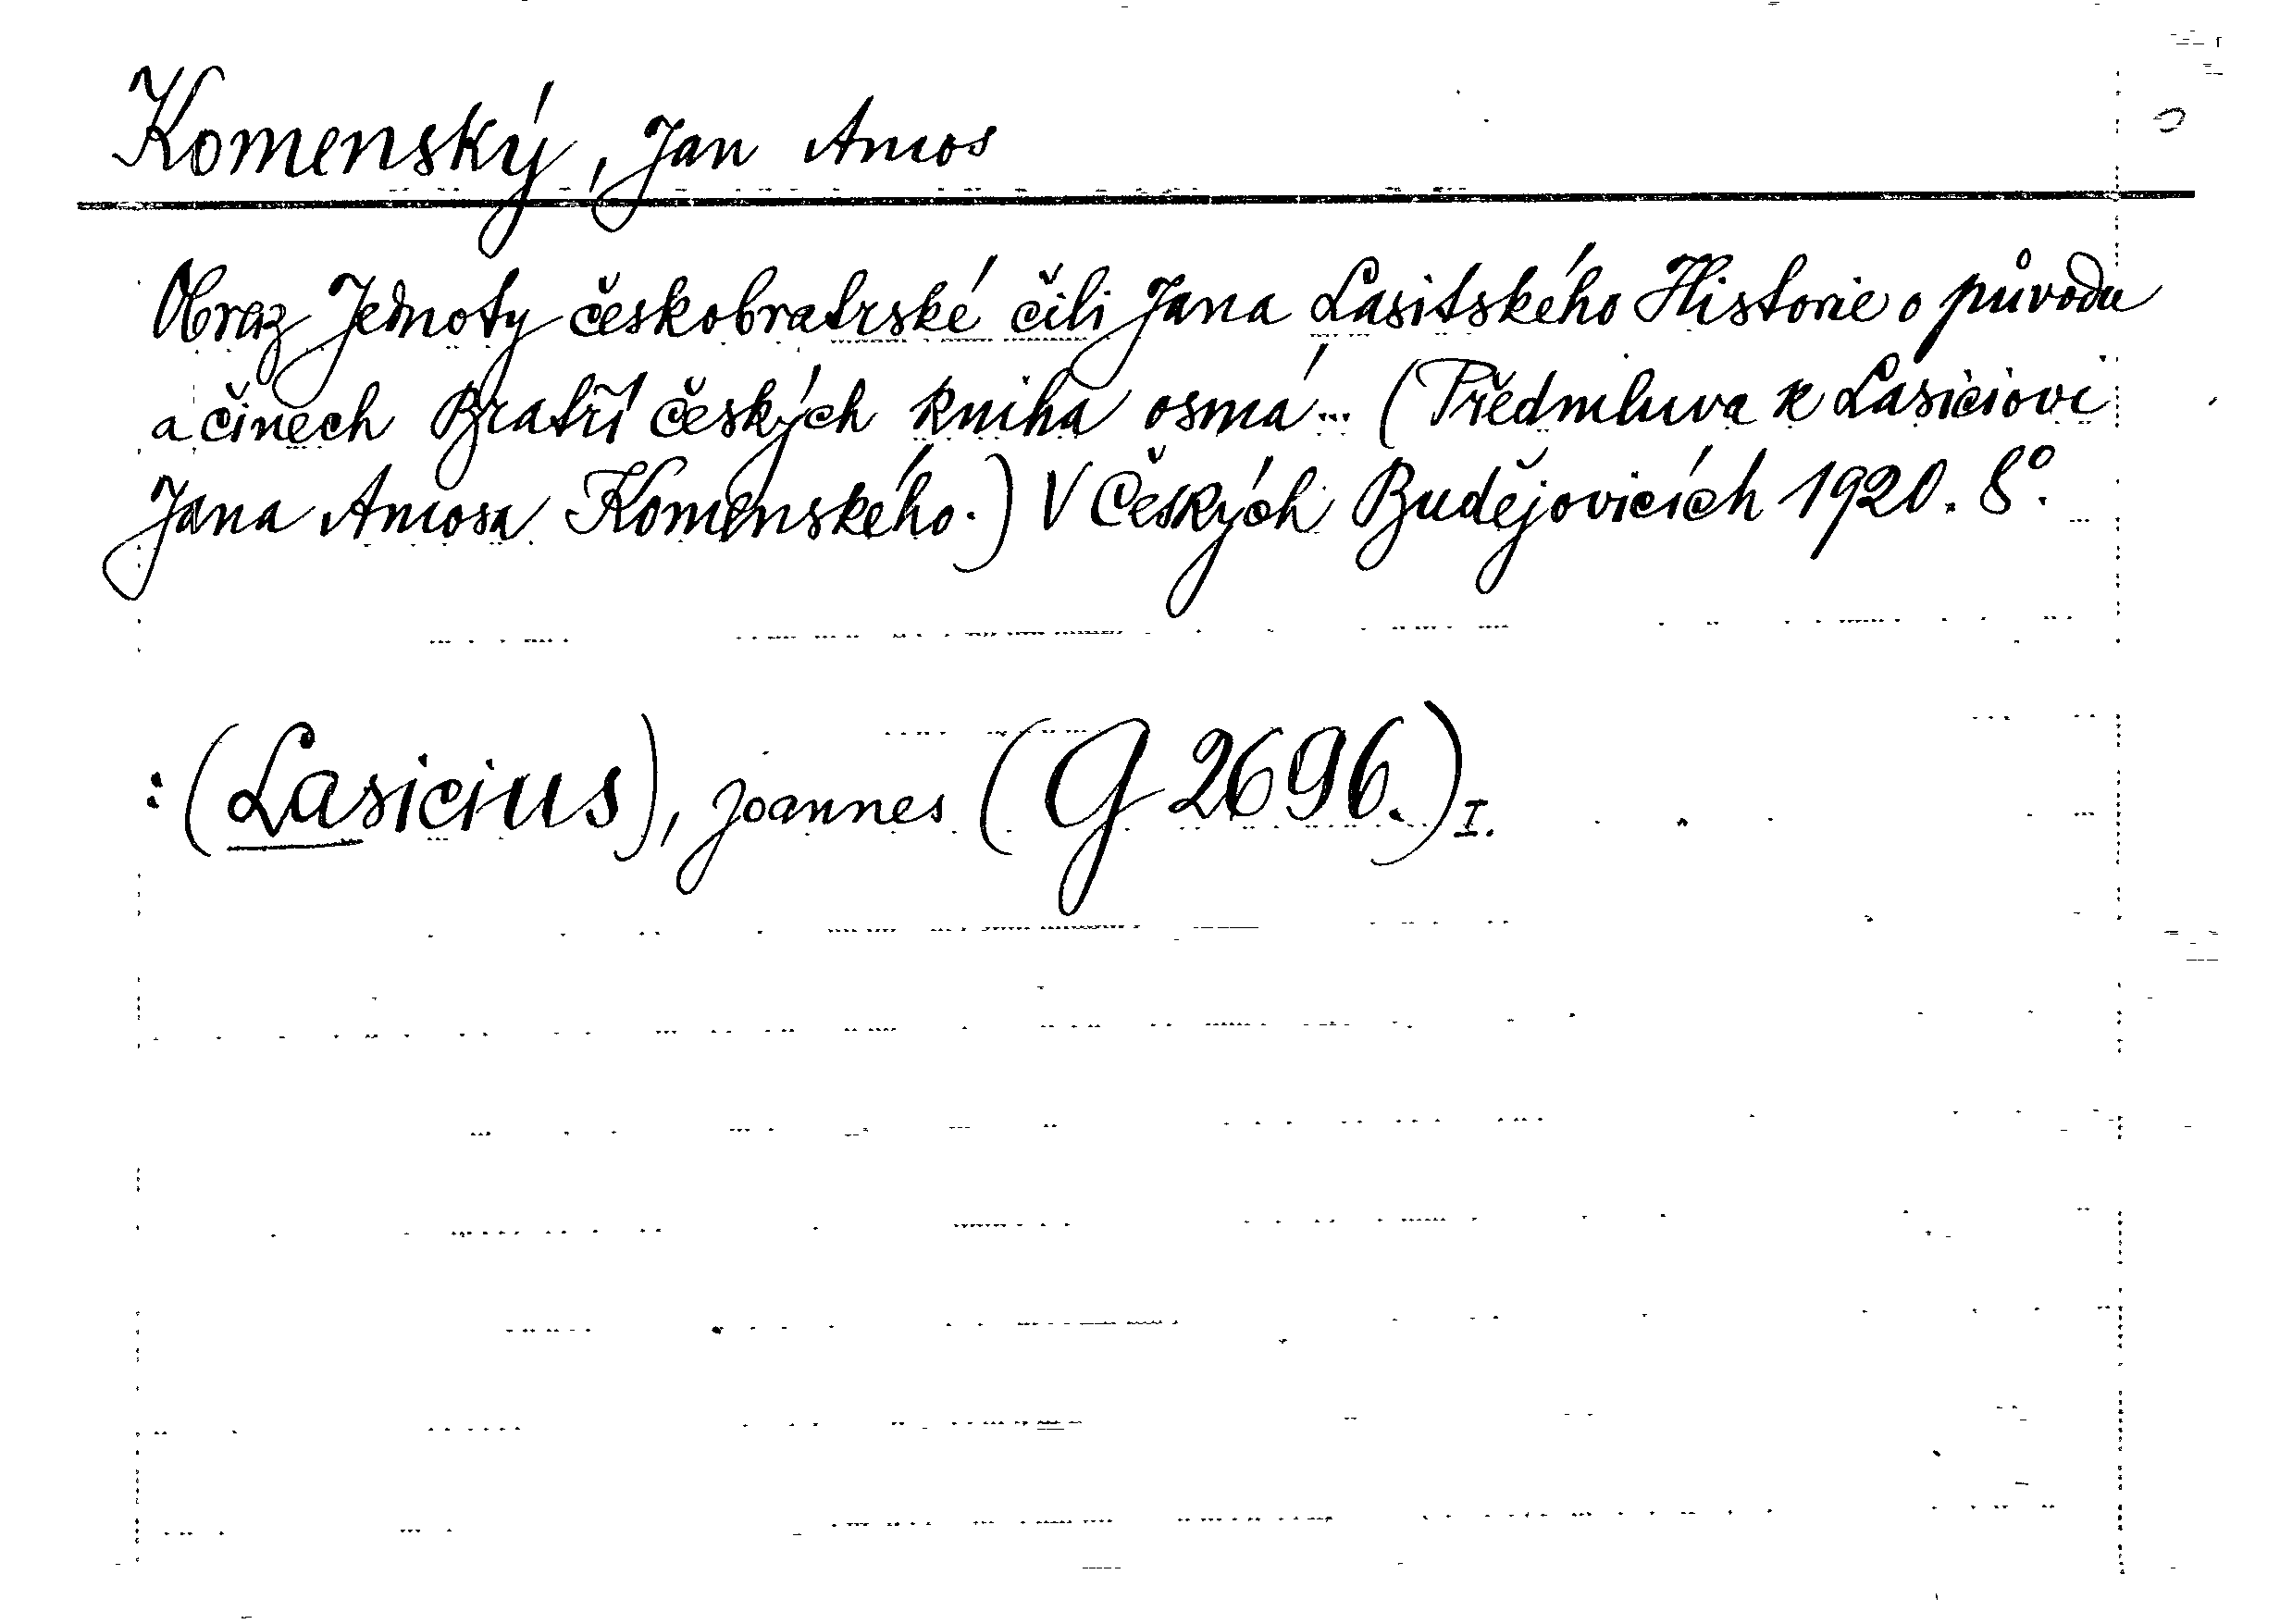 Komenský, Jan Amos
Obraz Jednoty českobratrské čili Jana Lasitského Historie o původu
a činech Bratří českých kniha osmá... (Předmluva k Lasiciovi
Jana Amosa Komenského.) V Českých Budějovicích 1920. 8°.
:(Lasicius), Joannes (G 2696.) I.